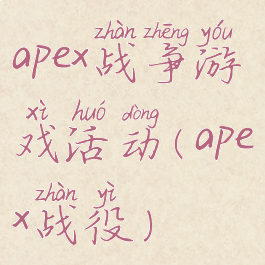 zhàn zhēng yóu
apex战争游
xì huó dòng
戏活动(ape
zhàn yì
x战役)